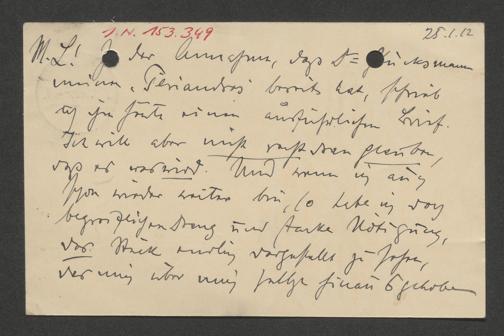 I.N. 153.349
28.1.12
M. L.! In der Annahme, dass Dr Glücksmann
meinen „Periandros" bereits hat, schrieb
ich ihm heute einen ausführlichen Brief.
Ich will aber nicht recht dran glauben,
dass es was wird. Und wenn ich auch
schon wieder weiter bin, so habe ich doch
begreiflichen Drang und starke Nötigung,
das Stück endlich dargestellt zu sehen,
der mich über mich selbst hinausgehoben